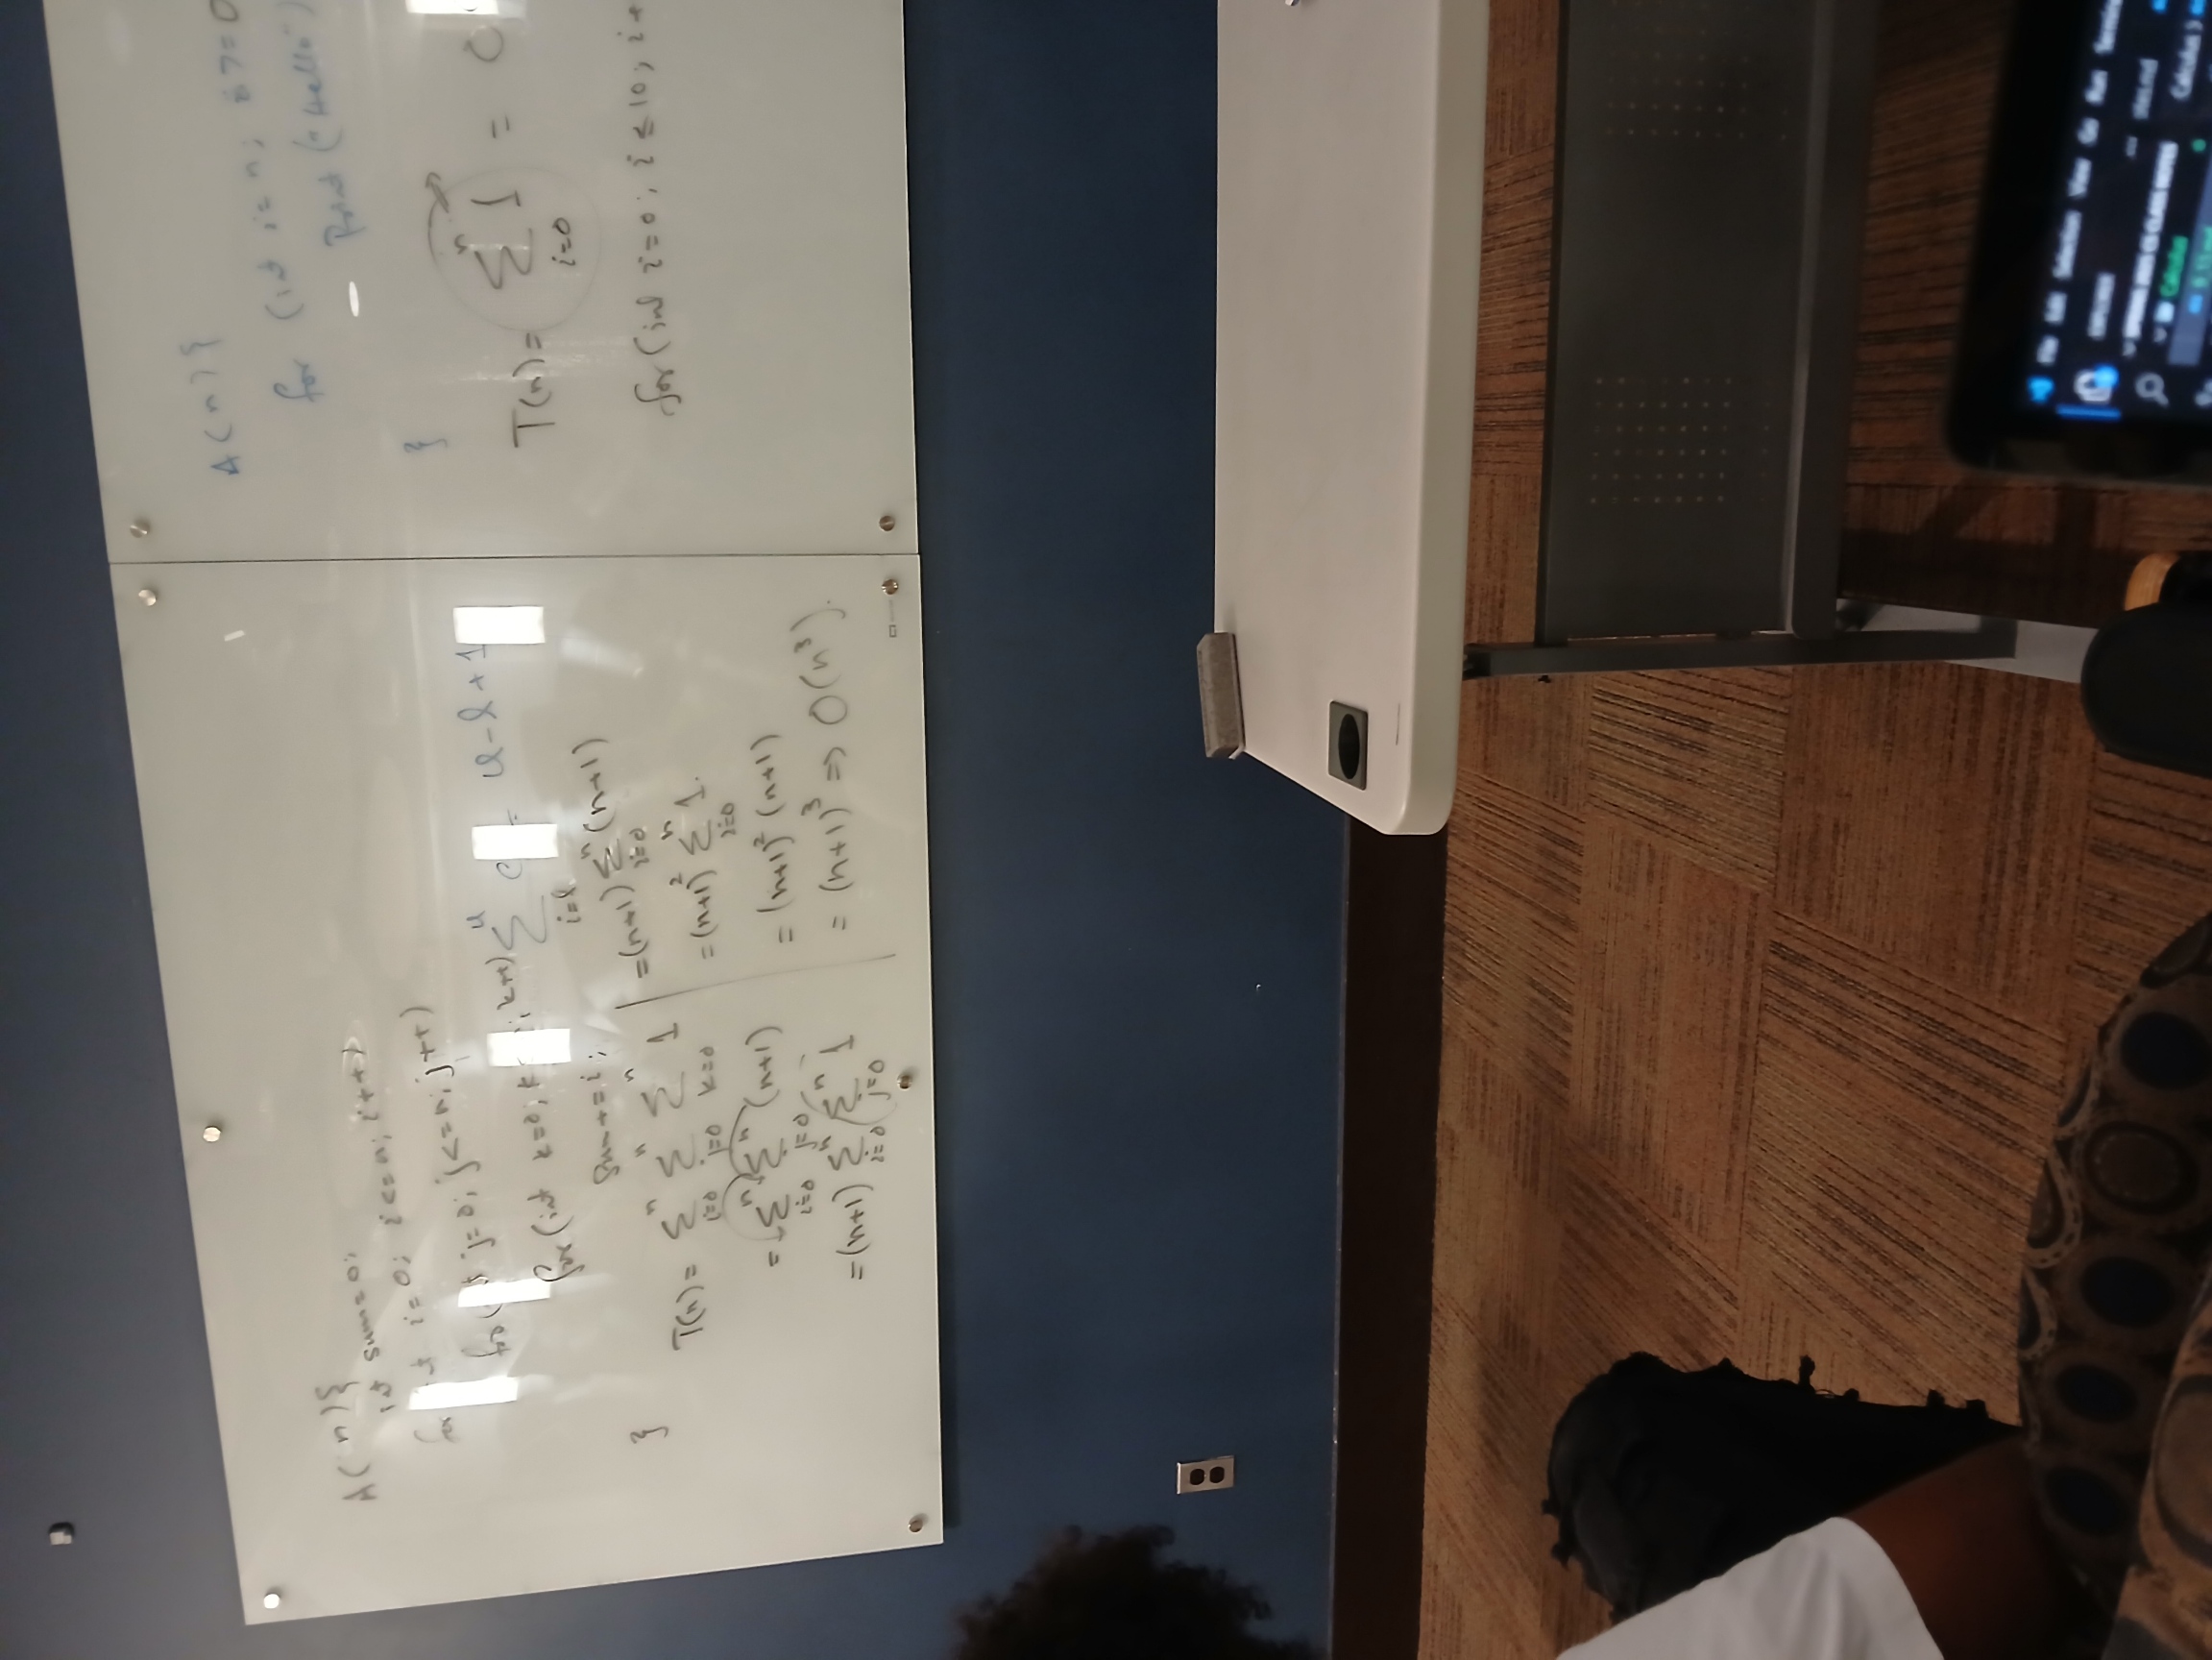 A(n){
int sum=0;
for i=0; i<=n; i++)
for( j=0; j<=n; j++)
for(int k=0; k ; k++)
sum+=i;
}
∑ i=l u = u-l+1
T(n)= ∑ i=0 n ∑ j=0 n ∑ k=0 n 1
= ∑ i=0 n ∑ j=0 n (n+1)
=(n+1) ∑ i=0 n ∑ j=0 n 1
=(n+1) ∑ i=0 n (n+1)
=(n+1)² ∑ i=0 n 1.
= (n+1)² (n+1)
= (n+1)³ => O(n³).
A(n){
for (int i=n; i>=0
Print("Hello")
}
T(n)= ∑ i=0 n 1 =
for(int i=0; i≤10; i+
File Edit Selection View Go Run
EXPLORER
SPRING 2025 CS CLASS NOTES
Calculus
Calculus >